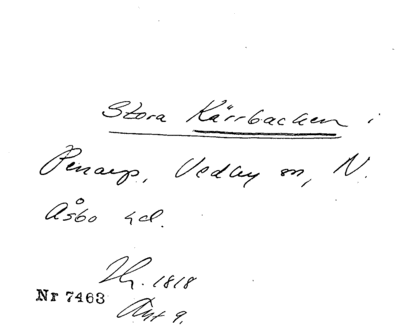 Stora Kärrbacken i
Penarp, Vedby sn, N.
Åsbo hd.
Nr 7463
1818
Akt 9.